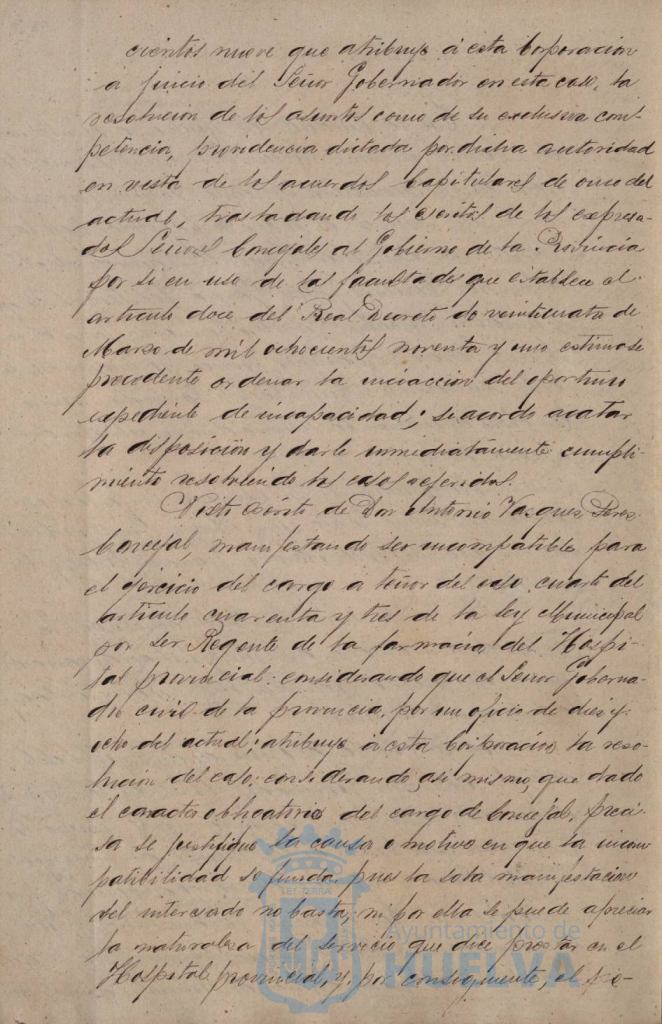 cientos nueve que atribuye á esta Corporacion
a juicio del Señor Gobernador en este caso, la
resolucion de los asuntos como de su exclusiva com-
petencia, providencia dictada por dicha autoridad
en vista de los acuerdos Capitulares de once del
actual, trasladando los escritos de los expresa-
dos Señores Concejales al Gobierno de la Provincia
por si en uso de las facultades que establece el
articulo doce del Real Decreto de veinticuatro de
Marzo de mil ochocientos noventa y uno estimase
procedente ordenar la iniciacion del oportuno
expediente de incapacidad; se acordó acatar
la disposición y darle inmediatamente cumpli-
miento resolviendo los casos referidos.
Visto escrito de Don Antonio Vazquez Perez
Concejal, manifestando ser incompatible para
el ejercicio del cargo a tenor del caso cuarto del
articulo cuarenta y tres de la ley Municipal
por ser Regente de la farmacia del Hospi-
tal provincial: considerando que el Señor Goberna-
dor civil de la provincia, por un oficio de diez y
ocho del actual, atribuye á esta Corporacion la reso-
lucion del caso; considerando, asi mismo, que dado
el caracter obligatorio del cargo de Concejal, preci-
sa se justifique la causa o motivo en que la incom
patibilidad se funda, pues la sola manifestacion
del interesado no basta, ni por ella se puede apreciar
la naturaleza del servicio que dice prestar en el
Hospital provincial, y, por consiguiente, el pro-
Ayuntamiento de
HUELVA